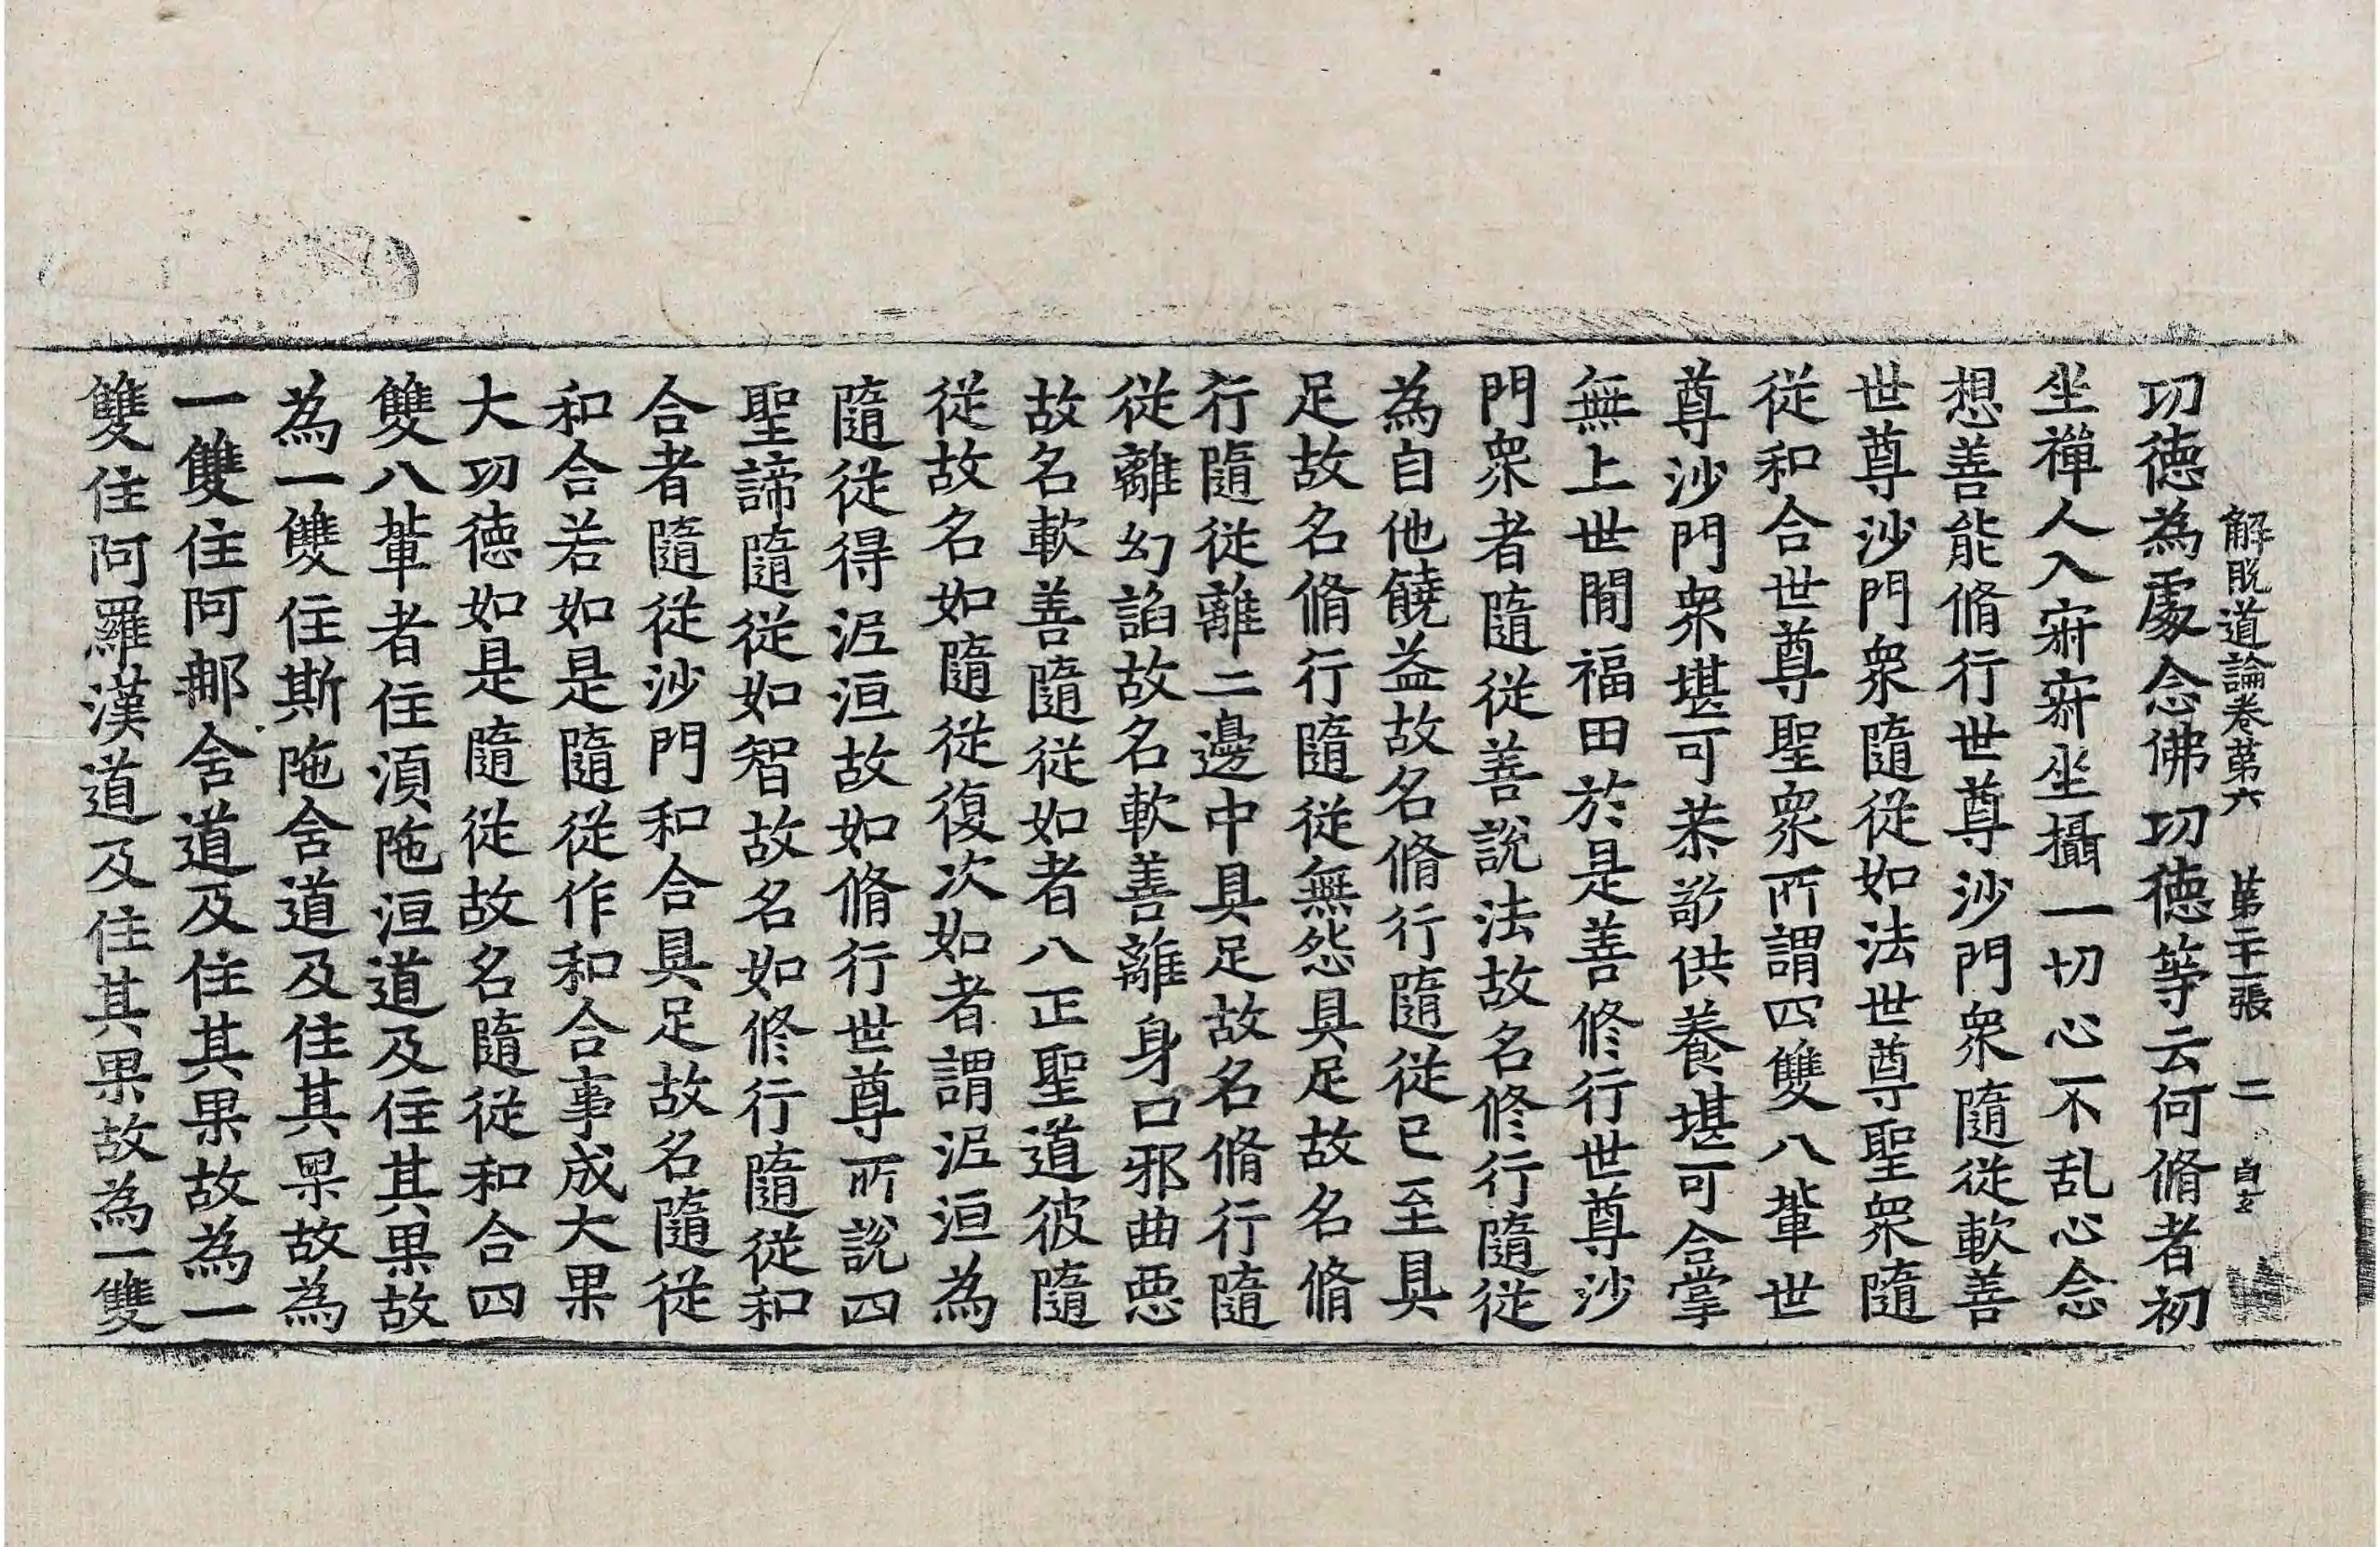 解脫道論卷第六 第二十一張 二 自玄
功徳為處念佛功徳等云何脩者初
坐禪人入寂寂坐攝一切心不乱心念
想善能脩行世尊沙門衆隨從軟善
世尊沙門衆隨從如法世尊聖衆隨
從和合世尊聖衆所謂四雙八輩世
尊沙門衆堪可恭敬供養堪可合掌
無上世間福田於是善修行世尊沙
門衆者隨從善說法故名修行隨從
為自他饒益故名脩行隨從已至具
足故名脩行隨從無怨具足故名脩
行隨從離二邊中具足故名脩行隨
從離幻諂故名軟善離身口邪曲悪
故名軟善隨從如者八正聖道彼隨
從故名如隨從復次如者謂泥洹為
隨從得泥洹故如脩行世尊所說四
聖諦隨從如智故名如修行隨從和
合者隨從沙門和合具足故名隨從
和合若如是隨從作和合事成大果
大功徳如是隨從故名隨從和合四
雙八輩者住湏陁洹道及住其果故
為一雙住斯陁含道及住其果故為
一雙住阿那含道及住其果故為一
雙住阿羅漢道及住其果故為一雙